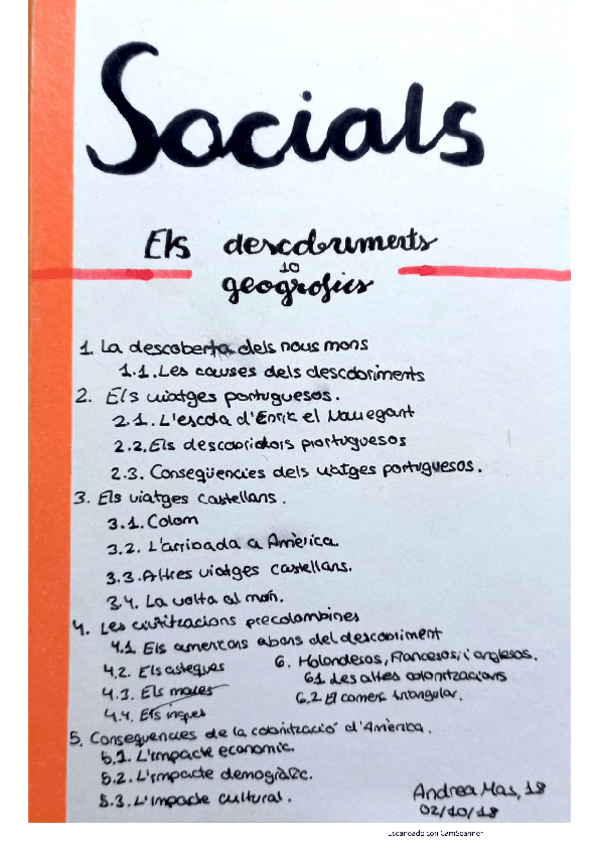 Socials
Els descobriments
10
geogràfics
1. La descoberta dels nous mons
1.1. Les causes dels descobriments
2. Els viatges portuguesos.
2.1. L'escola d'Enric el Navegant
2.2. Els descobridors portuguesos
2.3. Conseqüències dels viatges portuguesos.
3. Els viatges castellans.
3.1. Colom
3.2. L'arribada a Amèrica.
3.3. Altres viatges castellans.
3.4. La volta al món.
4. Les civilitzacions precolombines
4.1 Els americans abans del descobriment
4.2. Els asteques
4.3. Els maies
4.4. Els inques
5. Conseqüències de la colonització d'Amèrica.
5.1. L'impacte econòmic.
5.2. L'impacte demogràfic.
5.3. L'impacte cultural.
6. Holandesos, Francesos, i anglesos.
6.1 Les altes colonitzacions
6.2 El comerç triangular.
Andrea Mas, 18
02/10/18
Escaneado con CamScanner